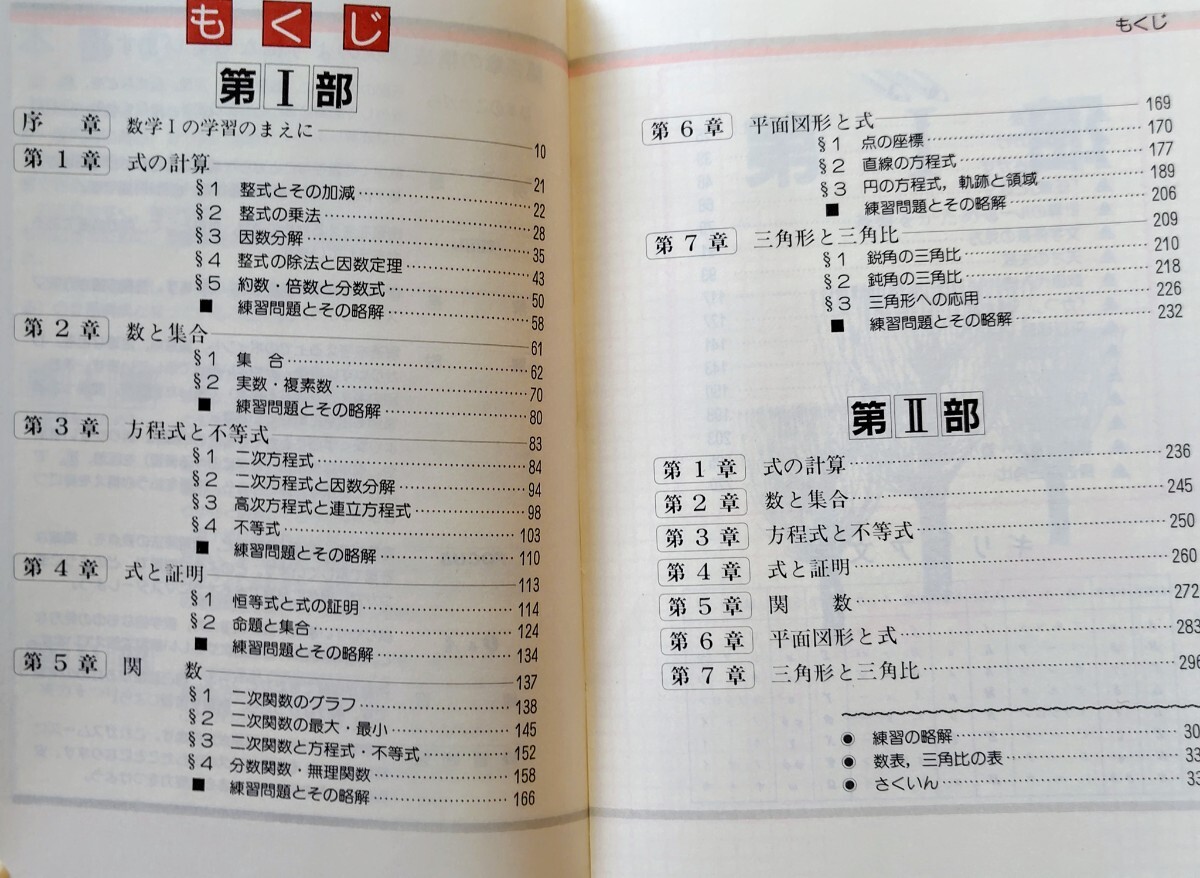 もくじ
第Ⅰ部
序章 数学Ⅰの学習のまえに 10
第1章 式の計算 21
§1 整式とその加減 22
§2 整式の乗法 28
§3 因数分解 35
§4 整式の除法と因数定理 43
§5 約数・倍数と分数式 50
■ 練習問題とその略解 58
第2章 数と集合 61
§1 集合 62
§2 実数・複素数 70
■ 練習問題とその略解 80
第3章 方程式と不等式 83
§1 二次方程式 84
§2 二次方程式と因数分解 94
§3 高次方程式と連立方程式 98
§4 不等式 103
■ 練習問題とその略解 110
第4章 式と証明 113
§1 恒等式と式の証明 114
§2 命題と集合 124
■ 練習問題とその略解 134
第5章 関数 137
§1 二次関数のグラフ 138
§2 二次関数の最大・最小 145
§3 二次関数と方程式・不等式 152
§4 分数関数・無理関数 158
■ 練習問題とその略解 166
もくじ
第6章 平面図形と式 169
§1 点の座標 170
§2 直線の方程式 177
§3 円の方程式，軌跡と領域 189
■ 練習問題とその略解 206
第7章 三角形と三角比 209
§1 鋭角の三角比 210
§2 鈍角の三角比 218
§3 三角形への応用 226
■ 練習問題とその略解 232
第Ⅱ部
第1章 式の計算 236
第2章 数と集合 245
第3章 方程式と不等式 250
第4章 式と証明 260
第5章 関数 272
第6章 平面図形と式 283
第7章 三角形と三角比 296
◉ 練習の略解 30
◉ 数表，三角比の表 33
◉ さくいん 33